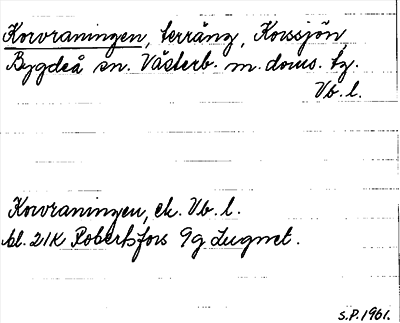 Korvraningen, terräng, Korssjön
Bygdeå sn. Västerb. m. doms. tg.
Vb. l.
Korvraningen, ek. Vb. l.
bl. 21K Robertsfors 9g Lugnet.
S.P. 1961.